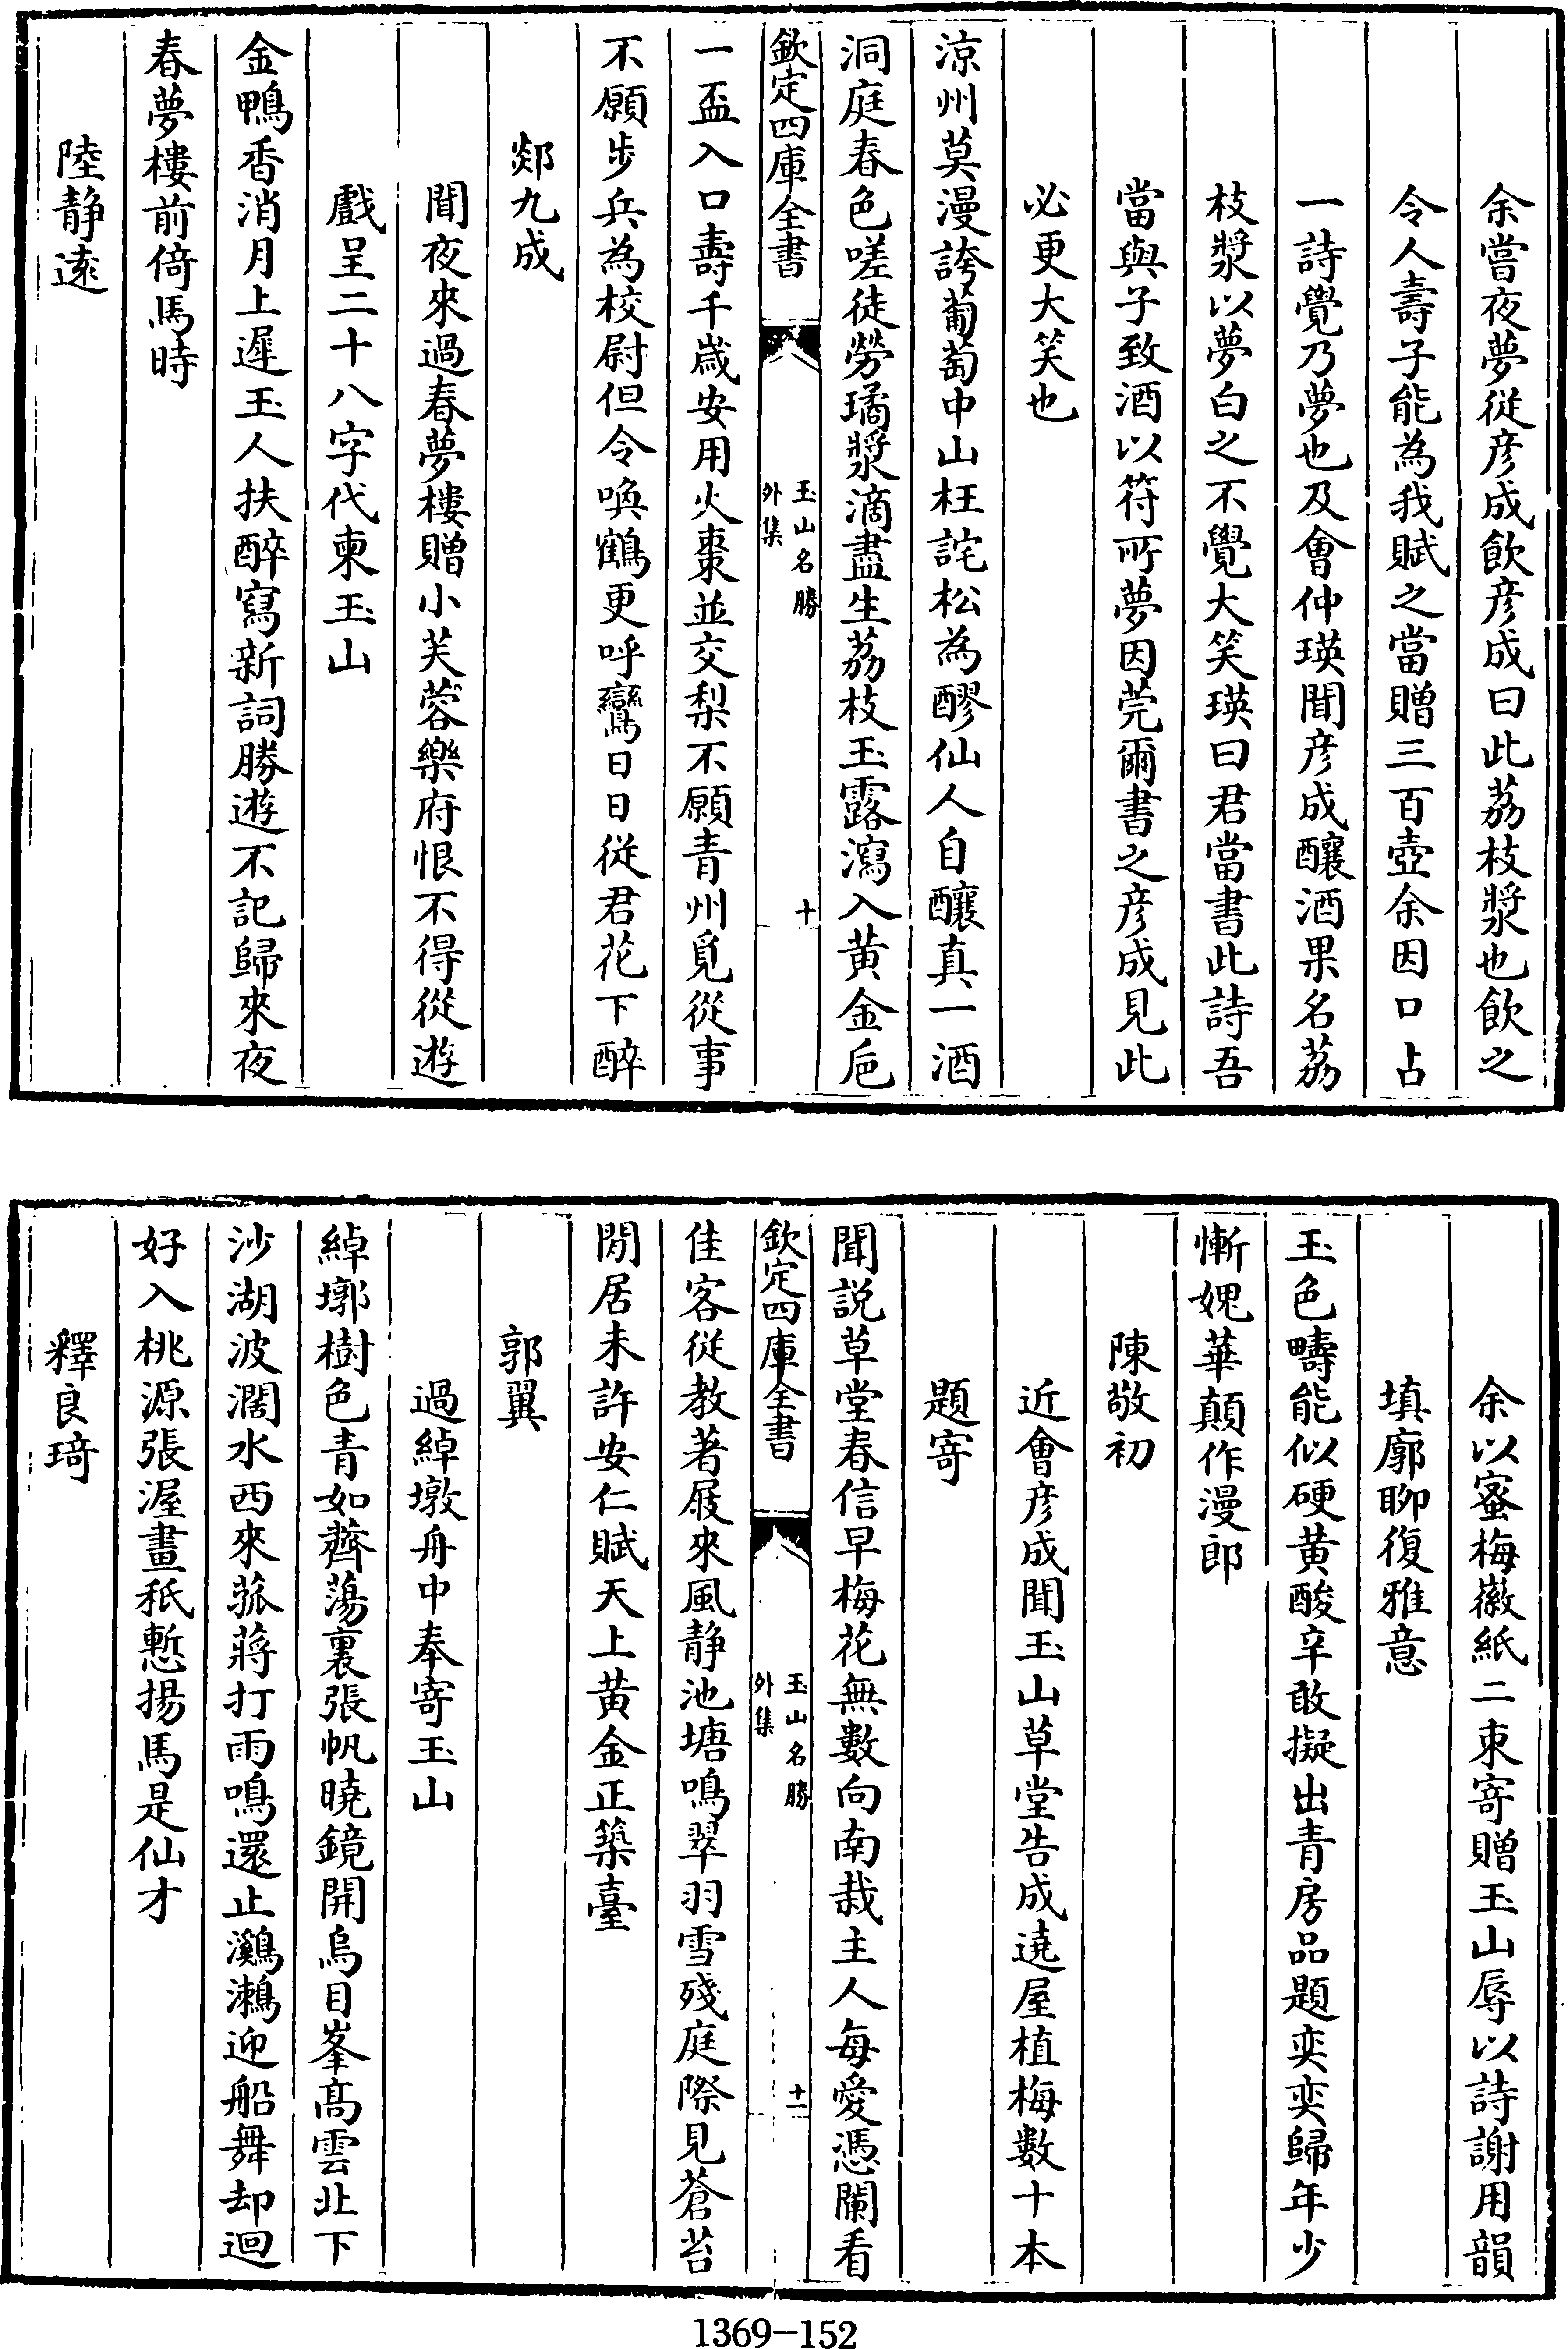 余嘗夜夢從彦成飲彦成曰此荔枝漿也飲之
令人壽子能為我賦之當贈三百壺余因口占
一詩覺乃夢也及會仲瑛聞彦成釀酒果名荔
枝漿以夢白之不覺大笑瑛曰君當書此詩吾
當與子致酒以符所夢因莞爾書之彦成見此
必更大笑也
涼州莫漫誇葡萄中山枉詫松為醪仙人自釀真一酒
洞庭春色嗟徒勞璚漿滴盡生荔枝玉露瀉入黄金巵
欽定四庫全書
玉山名勝
外集
十
一盃入口壽千嵗安用火棗並交梨不願青州覓從事
不願步兵為校尉但令喚鶴更呼鸞日日從君花下醉
郯九成
聞夜來過春夢樓贈小芙蓉樂府恨不得從遊
戲呈二十八字代柬玉山
金鴨香消月上遲玉人扶醉寫新詞勝遊不記歸來夜
春夢樓前倚馬時
陸静逺
余以蜜梅徽紙二束寄贈玉山辱以詩謝用韻
填廓聊復雅意
玉色疇能似硬黄酸辛敢擬出青房品題奕奕歸年少
慚媿華顛作漫郎
陳敬初
近會彦成聞玉山草堂告成遶屋植梅數十本
題寄
聞説草堂春信早梅花無數向南栽主人每愛憑闌看
欽定四庫全書
玉山名勝
外集
十一
佳客從教著屐來風静池塘鳴翠羽雪殘庭際見蒼苔
閒居未許安仁賦天上黄金正築臺
郭翼
過綽墩舟中奉寄玉山
綽墎樹色青如薺蕩裏張帆曉鏡開烏目峯髙雲北下
沙湖波濶水西來菰蔣打雨鳴還止鸂鷘迎船舞却迴
好入桃源張渥畫秖慙揚馬是仙才
釋良琦